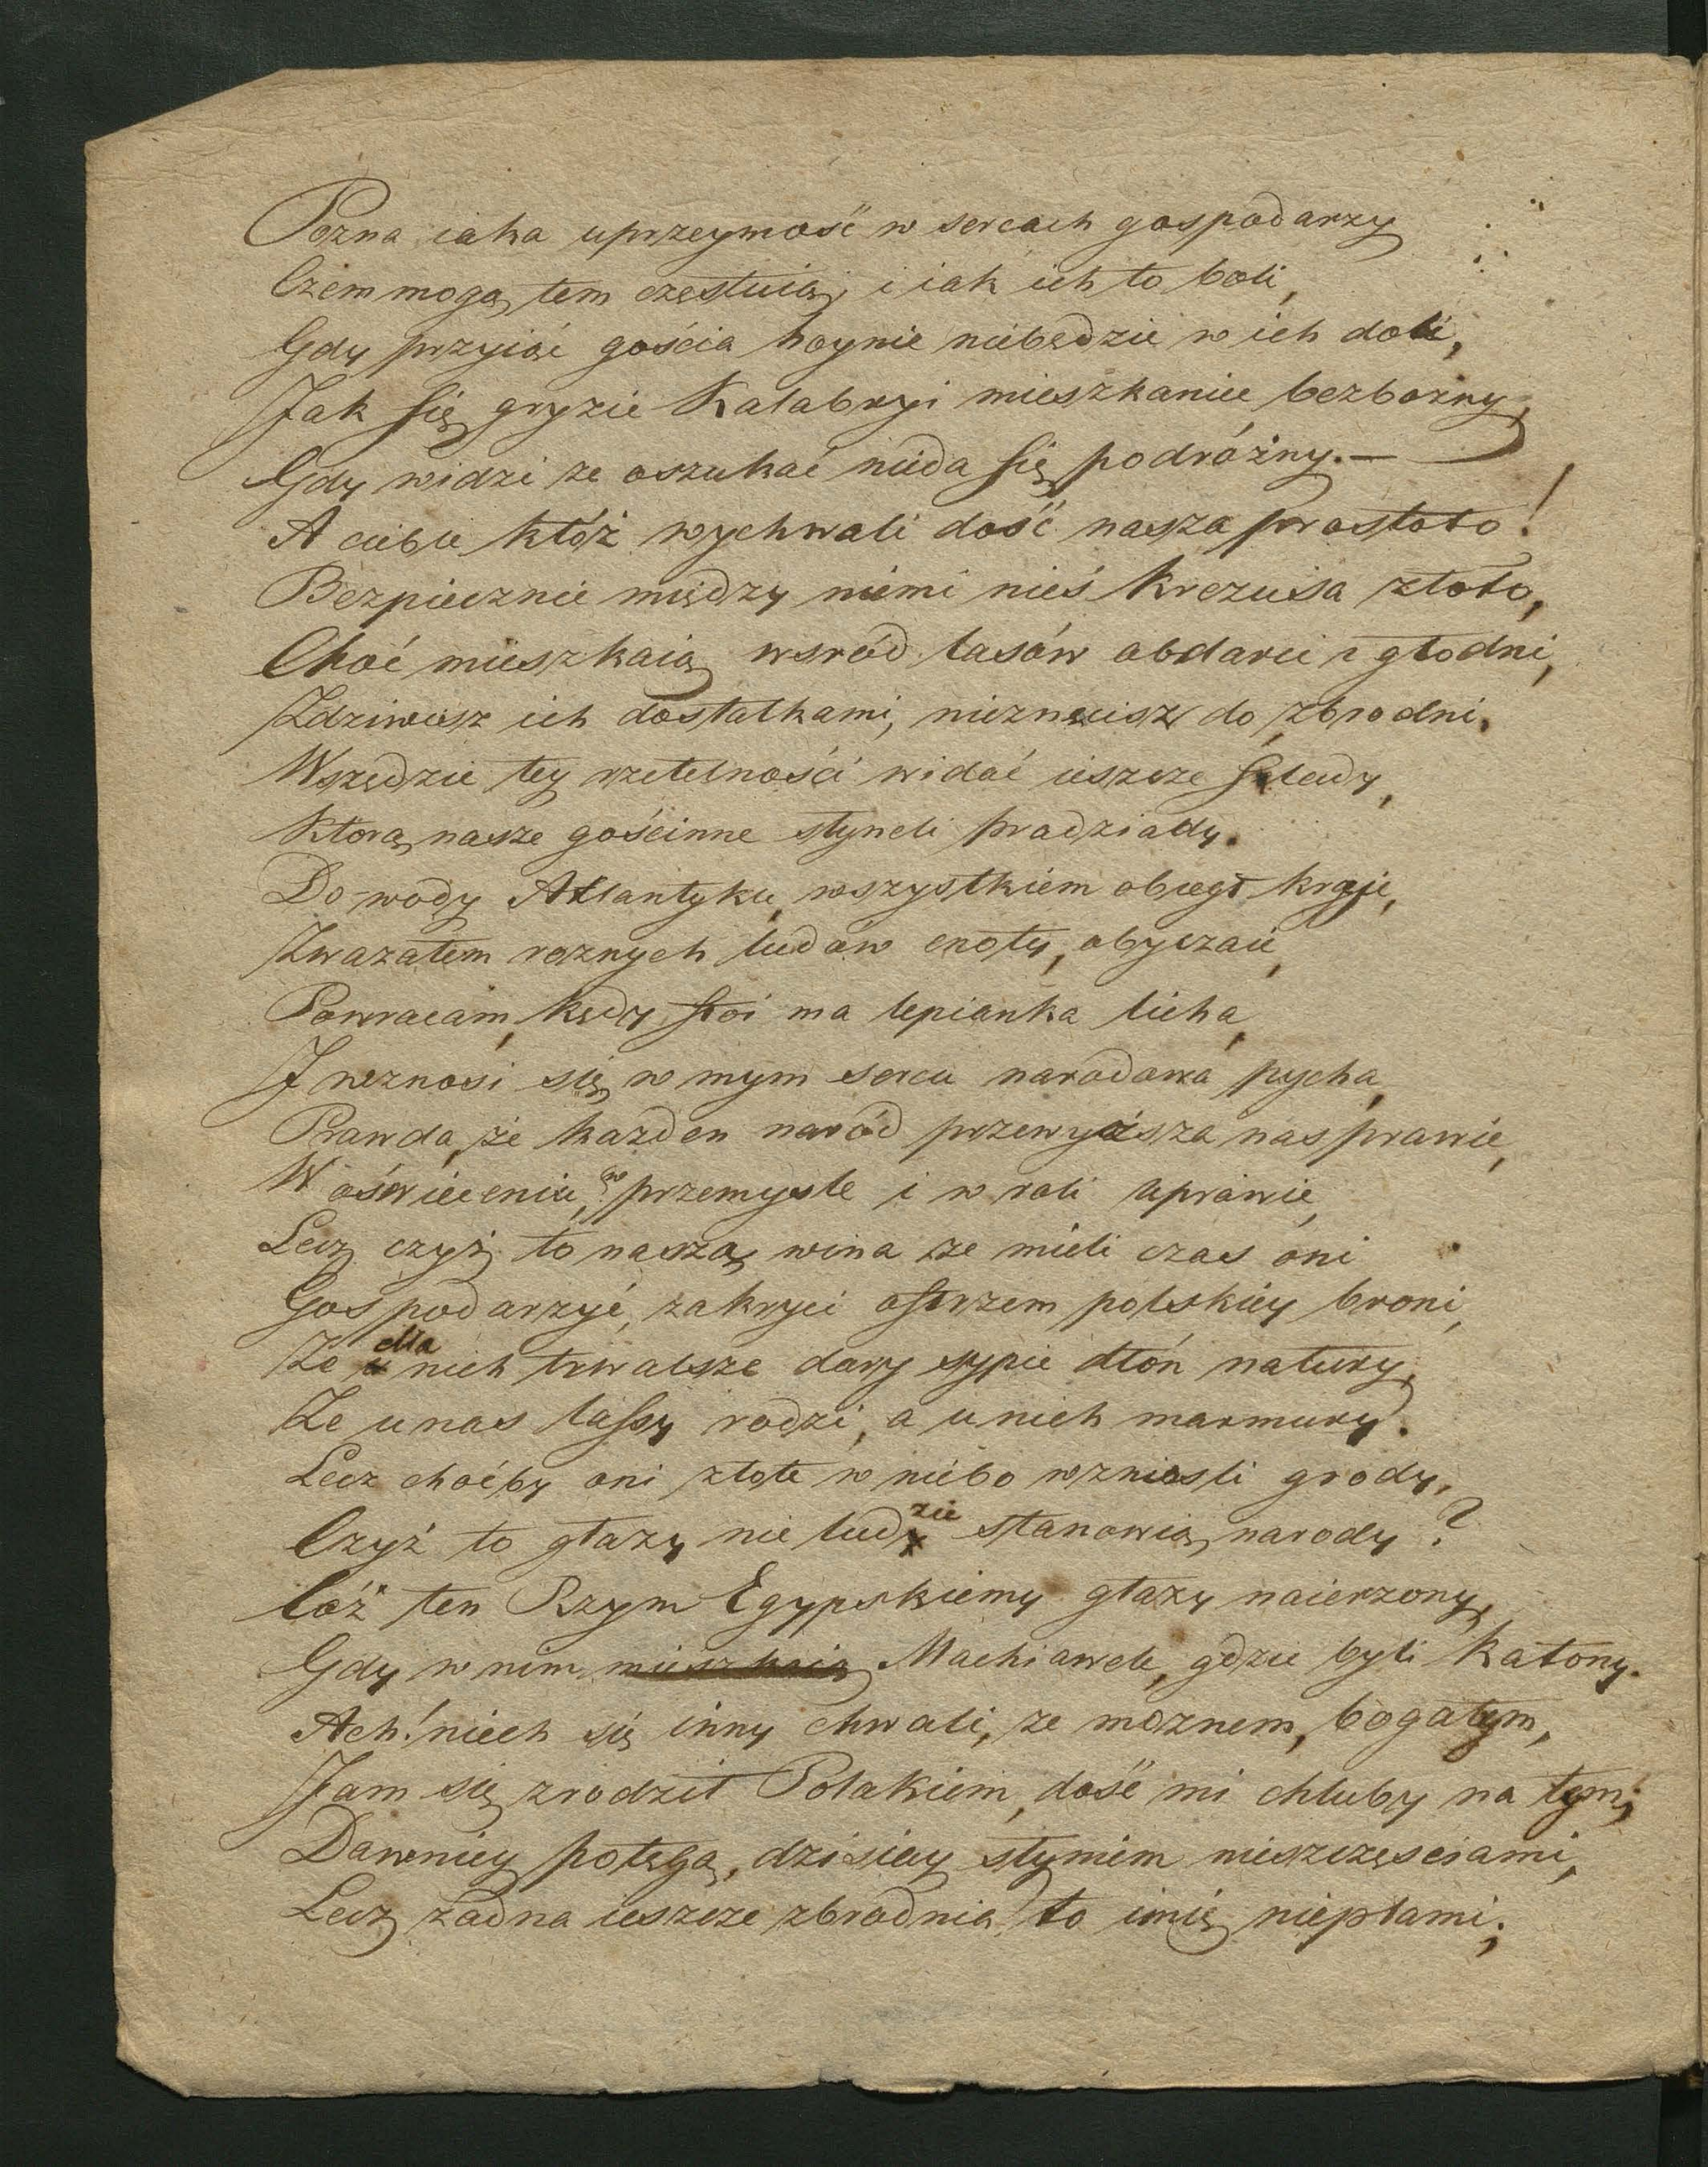 Pozna iaka uprzeymość w sercach gospodarzy
Czem mogą tem częstuią, i iak ich to boli,
Gdy przyiąć gościa hoynie niebędzie w ich doli,
Jak się gryzie Kalabryi mieszkaniec bezbożny,
Gdy widzi że oszukać nieda się podróżny.—
A ciebie któż wychwali dość nasza prostoto!
Bezpiecznie między niémi nieś Krezusa złoto,
Choć mieszkaią wsród lasów obdarci i głodni,
Zdziwisz ich dostatkami, nieznęcisz do zbrodni.
Wszędzie tey rzetelności widać ieszcze ślady,
Którą nasze gościnne słyneli pradziady.
Do wody Atlantyku, wszystkiem obiegł kraje,
Zważałem roznych ludów cnoty, obyczaie,
Powracam, kędy stoi ma lepianka licha,
I wznosi się w mym sercu narodowa pycha,
Prawda, że każden naród przewyższa nas prawie,
W oświeceniu, w przemysle i w roli uprawie,
Lecz czyż to naszą wina że mieli czas oni
Gospodarzyć, zakryci ostrzem polskiey broni,
Że u dla nich trwalsze dary sypie dłoń natury,
Że u nas lassy rodzi, a u nich marmury.
Lecz choćby oni złote w niebo wznieśli grody,
Czyż to głazy nie ludzie stanowią narody?
Cóż ten Rzym Egypskiemy głazy naierzony,
Gdy w nim mieszkaią Machiawele, gdzie byli Katony.
Ach! niech się inny chwali, że możnem, bogatym,
Jam się zrodził Polakiem, dość mi chluby na tym;
Dawniey potęgą, dzisiay słyniem nieszczęsciami,
Lecz żadna ieszcze zbrodnia to imię nieplami;